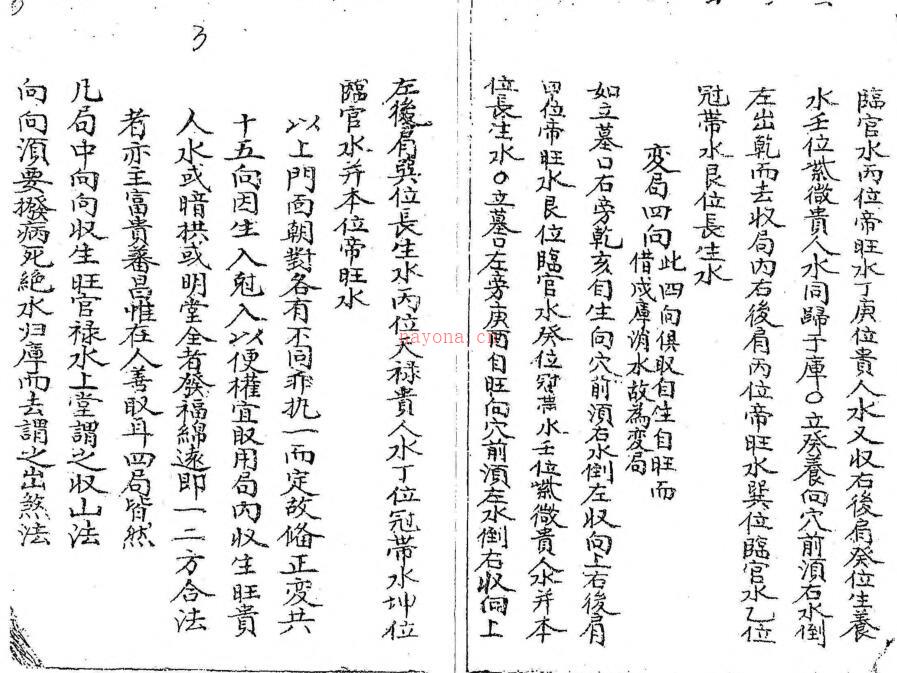 臨官水丙位帝旺水丁庚位貴人水又収右後肩癸位生養
水壬位紫微貴人水同歸于庫○立癸養向穴前湏右水倒
左出乾而去収局内右後肩丙位帝旺水巽位臨官水乙位
冠帶水艮位長生水
変局四向
此四向俱取自生自旺而
借戌庫消水故為変局
如立墓口右旁乾亥自生向穴前湏右水倒左収向上右後肩
甲位帝旺水艮位臨官水癸位冠帶水壬位紫微貴人水并本
位長生水○立墓口左旁庚酉自旺向穴前湏左水倒右収向上
3
左後肩巽位長生水丙位天禄貴人水丁位冠帶水坤位
臨官水并本位帝旺水
以上門面朝對各有不同非扤一而定故偹正变共
十五向因生入尅入以便權宜取用局内収生旺貴
人水或暗拱或明堂全者發福綿遠即一二方合法
者亦主富貴蕃昌惟在人善取耳四局皆然
凡局中向向収生旺官禄水上堂謂之収山法
向向湏要撥病死絶水归庫而去謂之出煞法
nayona.cn